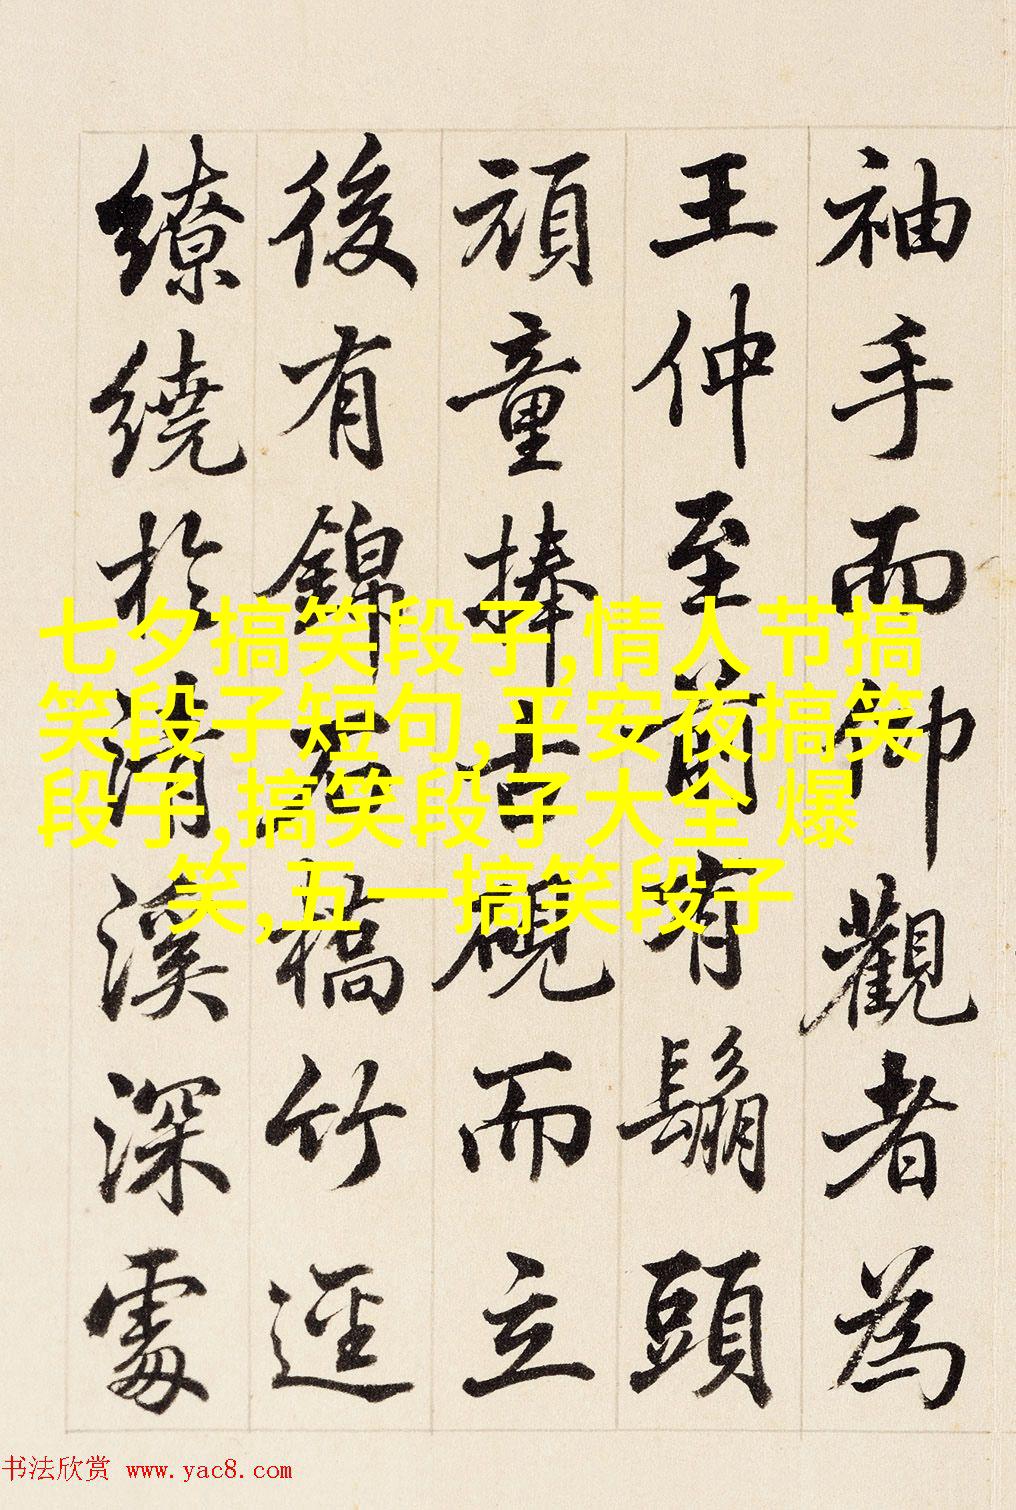 袖手而仰觀者為
王仲至前有鬅頭
頑童捧古硯而立
後有錦石橋竹逕
繚繞扵清溪深處
七夕搞笑段子,情人节搞
笑段子短句,平安夜搞笑
段子,搞笑段子大全 爆
笑,五一搞笑段子
书法欣赏 www.yac8.com